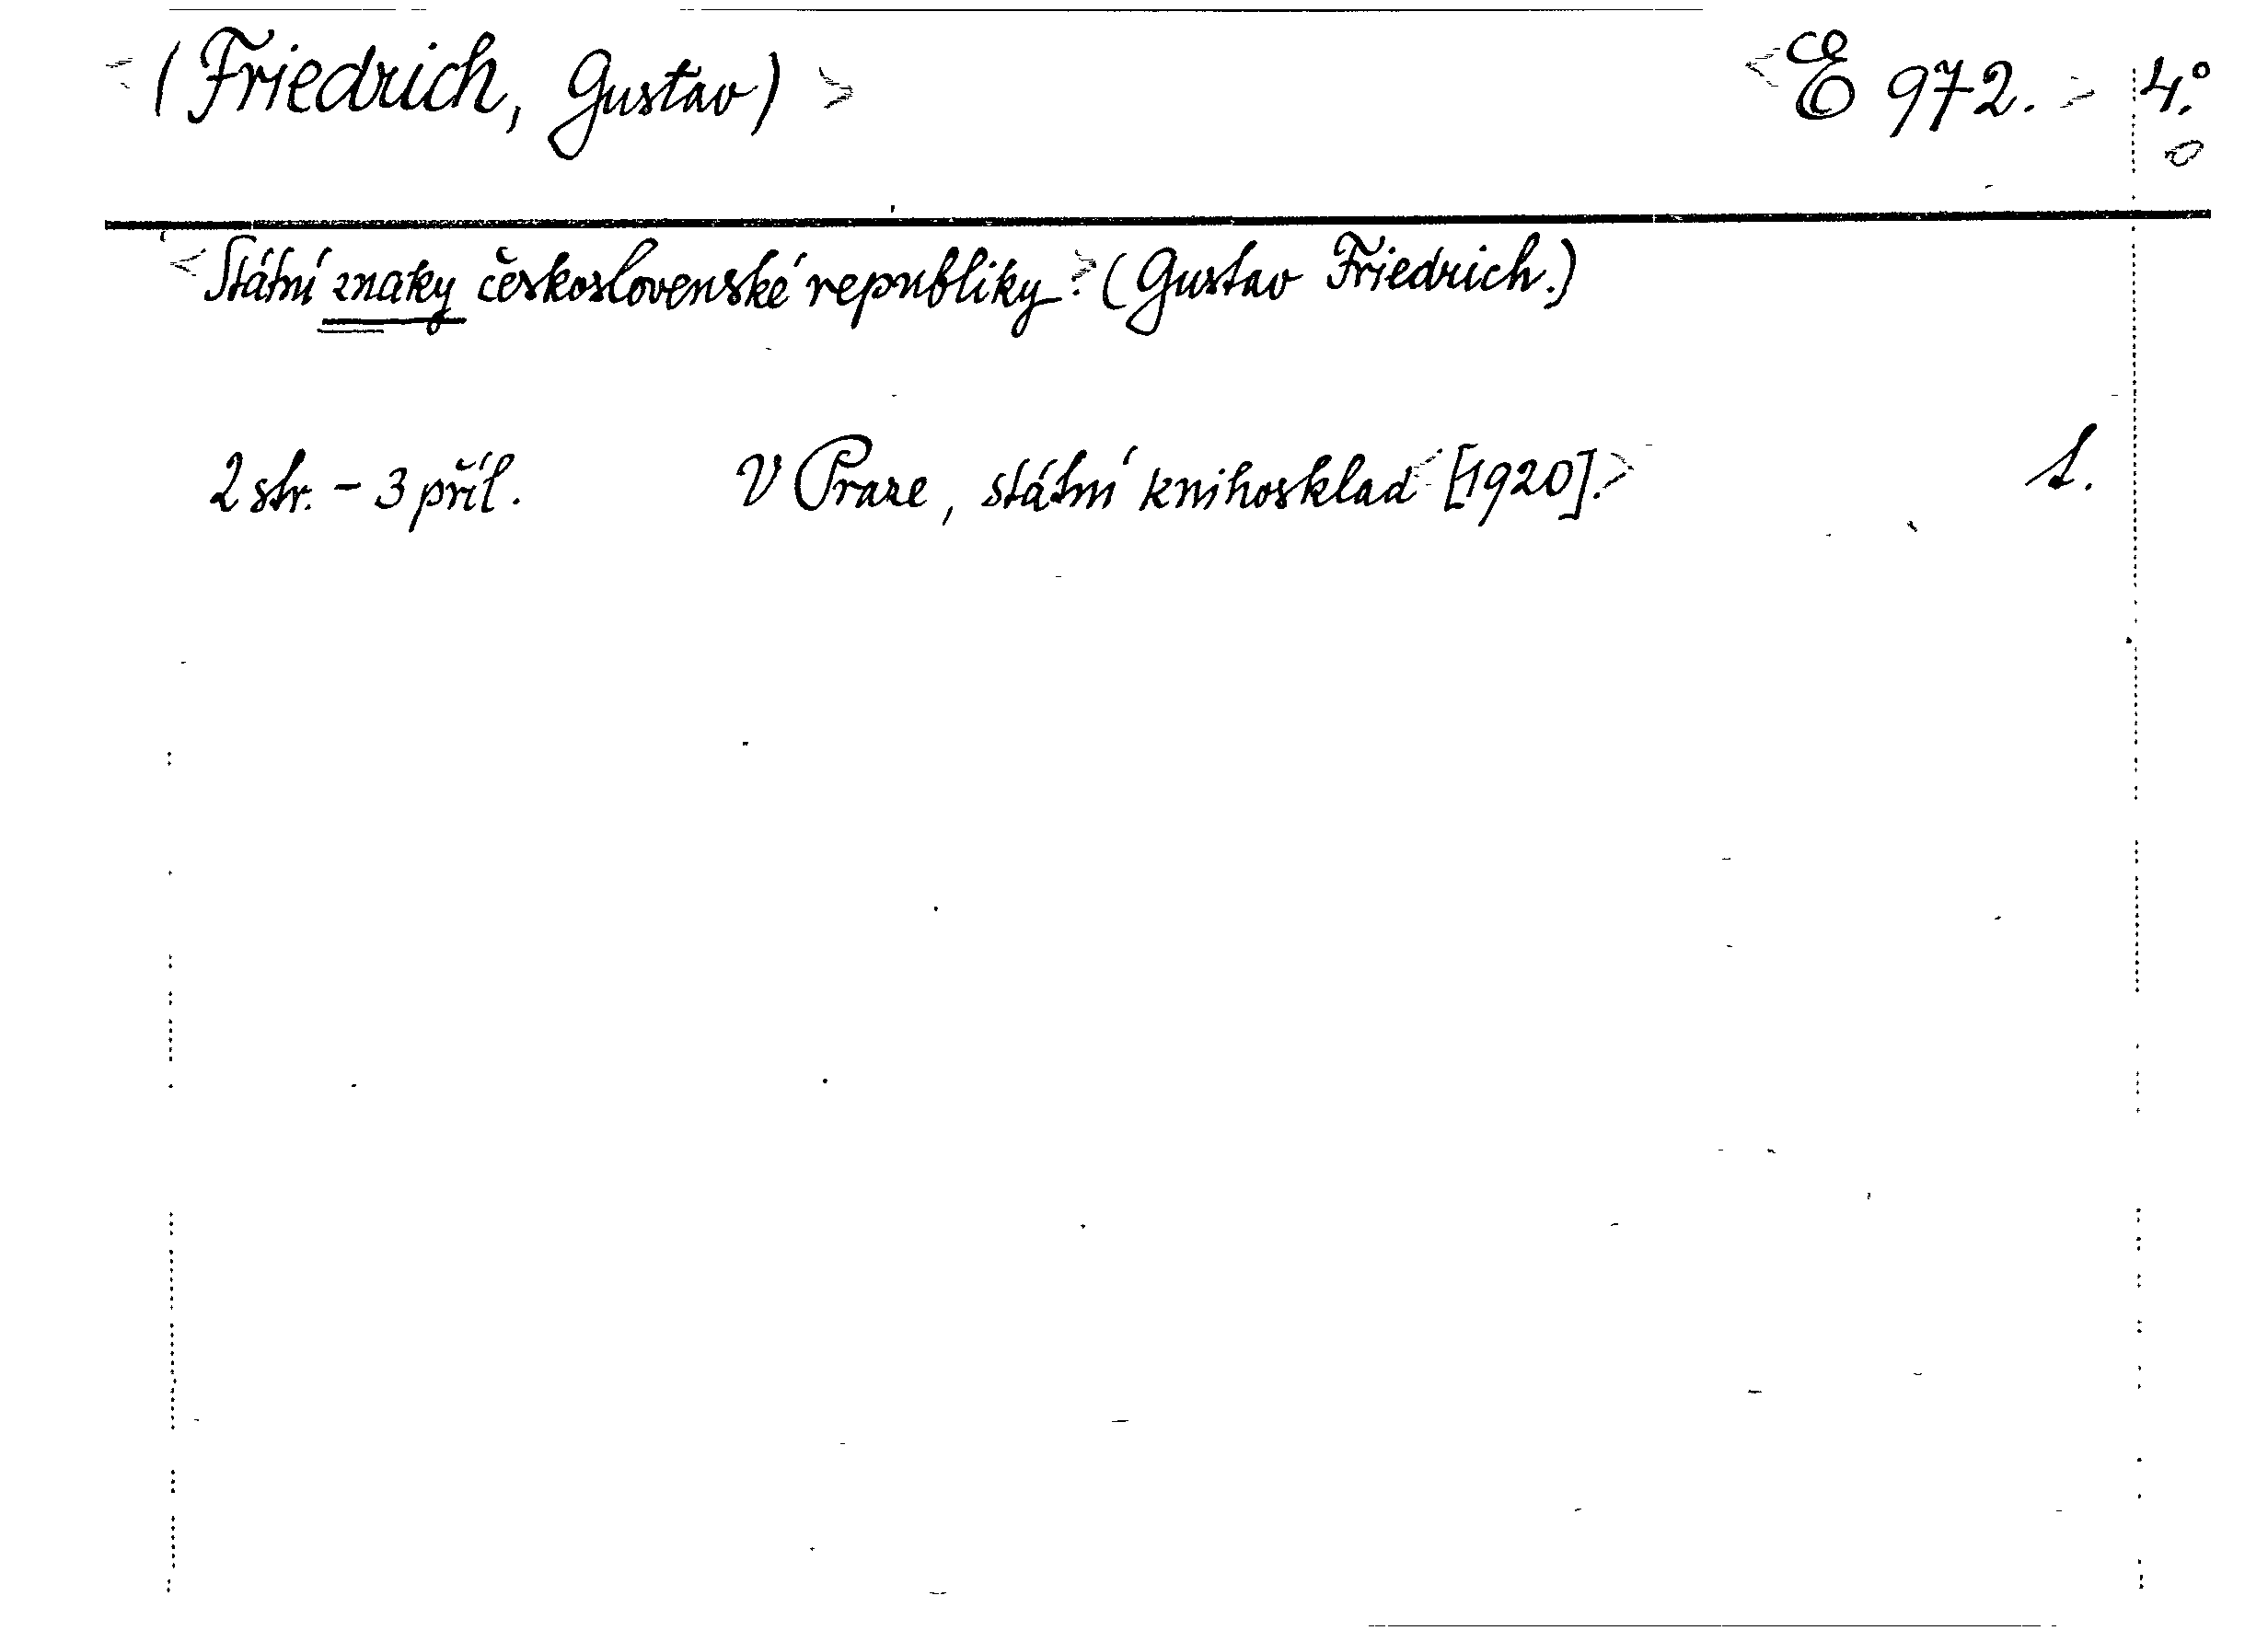 <(Friedrich, Gustav)> <E 972.> 4.°
<Státní znaky československé republiky>. (Gustav Friedrich.)
2 str. - 3 příl. V Praze, státní knihosklad <[1920].> 1.